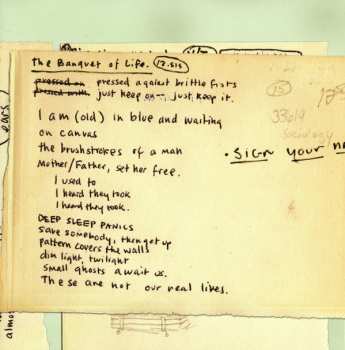 The Banquet of Life. 12.515
pressed on pressed against brittle frosts
pressed with just keep on—, just, keep it.
I am (old) in blue and waiting
on canvas
the brushstrokes of a man
Mother/Father, set her free.
I used to
I heard they took
I heard they took.
DEEP SLEEP PANICS
Save somebody, then get up
pattern covers the walls
dim light, twilight
small ghosts await us.
These are not our real lives.
(25)
33614
Sociology
. SIGN YOUR
(ears)
almos